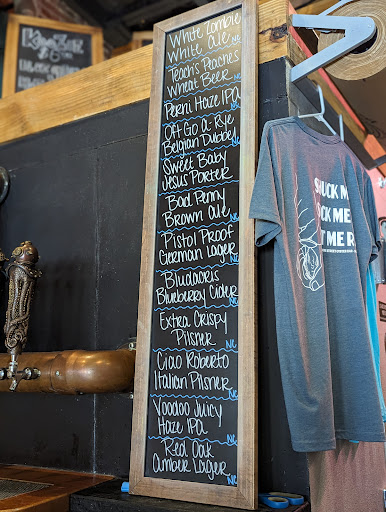 White Zombie
White Ale NC
Teach's Peaches
Wheat Beer NC
Perni Haze IPA
NC
Oft Go a-Rye
Belgian Dubbel
NC
Sweet Baby
Jesus Porter
Bad Penny
Brown Ale NC
Pistol Proof
German Lager
NC
Bludacris
Blueberry Cider
NC
Extra Crispy
Pilsner
NC
Ciao Roberto
Italian Pilsner
NC
Voodoo Juicy
Haze IPA NC
Red Oak
Amber Lager
NC
UCK M
CK ME
T ME R